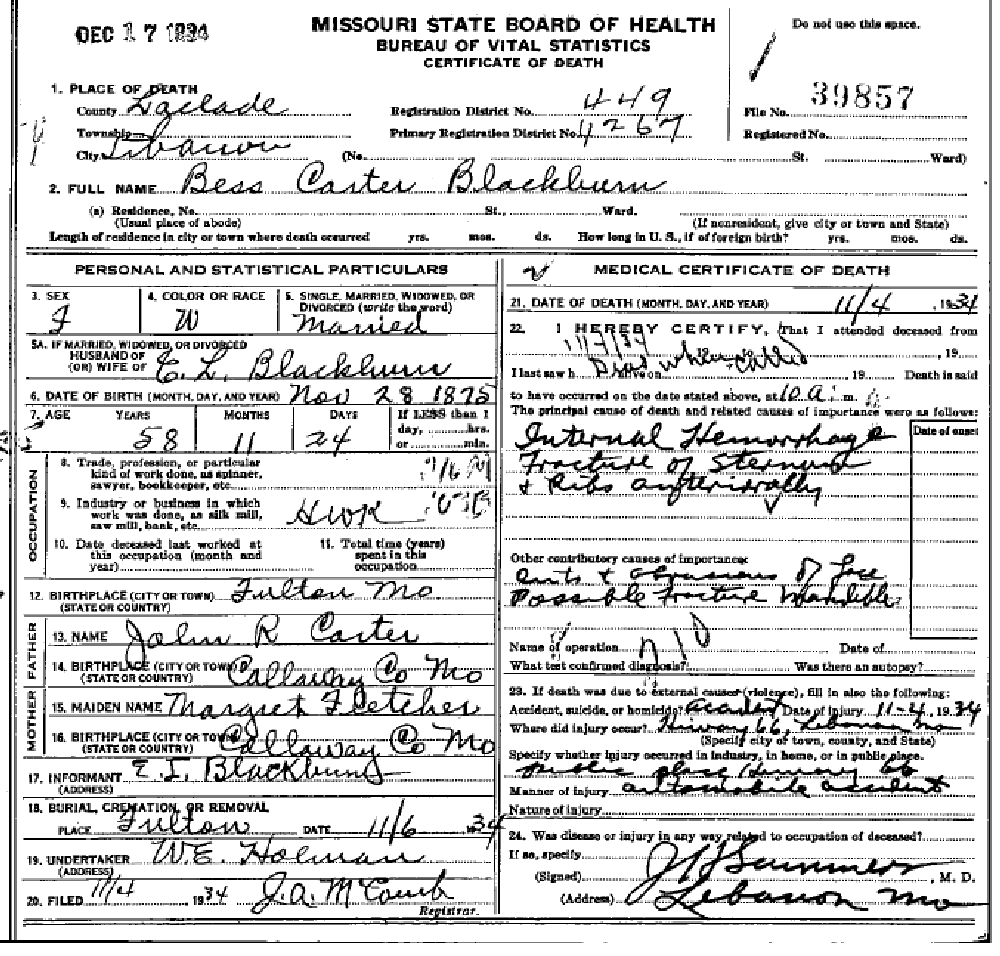 DEC 17 1934
MISSOURI STATE BOARD OF HEALTH
BUREAU OF VITAL STATISTICS
CERTIFICATE OF DEATH
Do not use this space.
1. PLACE OF DEATH
County Laclade
Registration District No. 449
File No. 39857
Township
Primary Registration District No. 4267
Registered No.
City Lebanon (No. St. Ward)
2. FULL NAME Bess Carter Blackburn
(a) Residence, No. St., Ward.
(Usual place of abode) (If nonresident, give city or town and State)
Length of residence in city or town where death occurred yrs. mos. ds. How long in U. S., if of foreign birth? yrs. mos. ds.
PERSONAL AND STATISTICAL PARTICULARS
3. SEX
F
4. COLOR OR RACE
W
5. SINGLE, MARRIED, WIDOWED, OR DIVORCED (write the word)
Married
5A. IF MARRIED, WIDOWED, OR DIVORCED
HUSBAND OF
(OR) WIFE OF E. L. Blackburn
6. DATE OF BIRTH (MONTH, DAY, AND YEAR) Nov 28 1875
7. AGE YEARS MONTHS DAYS If LESS than 1 day, hrs. or min.
58 11 24
OCCUPATION
8. Trade, profession, or particular
kind of work done, as spinner,
sawyer, bookkeeper, etc.
9. Industry or business in which
work was done, as silk mill,
saw mill, bank, etc. HWK
10. Date deceased last worked at
this occupation (month and
year)
11. Total time (years)
spent in this
occupation
12. BIRTHPLACE (CITY OR TOWN) Fulton Mo
(STATE OR COUNTRY)
FATHER
13. NAME John R Carter
14. BIRTHPLACE (CITY OR TOWN) Callaway Co Mo
(STATE OR COUNTRY)
MOTHER
15. MAIDEN NAME Margret Fletcher
16. BIRTHPLACE (CITY OR TOWN) Callaway Co Mo
(STATE OR COUNTRY)
17. INFORMANT E. L. Blackburn
(ADDRESS)
18. BURIAL, CREMATION, OR REMOVAL
PLACE Fulton DATE 11/6 1934
19. UNDERTAKER W.E. Holman
(ADDRESS)
20. FILED 11/4 1934 J.A. McComb
Registrar.
MEDICAL CERTIFICATE OF DEATH
21. DATE OF DEATH (MONTH, DAY, AND YEAR) 11/4, 1934
22. I HEREBY CERTIFY, That I attended deceased from
, 19
I last saw h alive on 19 Death is said
Dead when called
to have occurred on the date stated above, at 10 A. m.
The principal cause of death and related causes of importance were as follows:
Date of onset
Internal Hemorrhage
Fracture of Sternum
& Ribs anteriorally
Other contributory causes of importance:
Cuts & abrasions of face
Possible fracture mandible
Name of operation Date of
What test confirmed diagnosis? Was there an autopsy?
23. If death was due to external causes (violence), fill in also the following:
Accident, suicide, or homicide? Accident Date of injury 11-4, 1934
Where did injury occur? Hiway 66, Lebanon Mo
(Specify city of town, county, and State)
Specify whether injury occurred in industry, in home, or in public place.
public place Hiway 66
Manner of injury automobile accident
Nature of injury
24. Was disease or injury in any way related to occupation of deceased?
If so, specify
(Signed) Summers, M. D.
(Address) Lebanon Mo